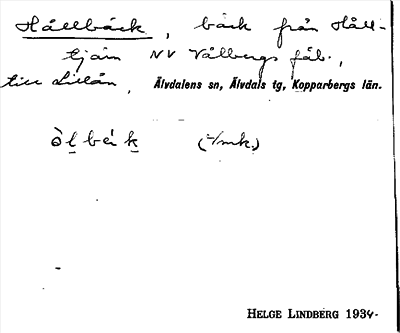 Hållbäck, bäck från Håll-
tjärn NV Vålbergs fäb.,
till Lillån, Älvdalens sn, Älvdals tg, Kopparbergs län.
òl bèk (-/mk.)
HELGE LINDBERG 1934.